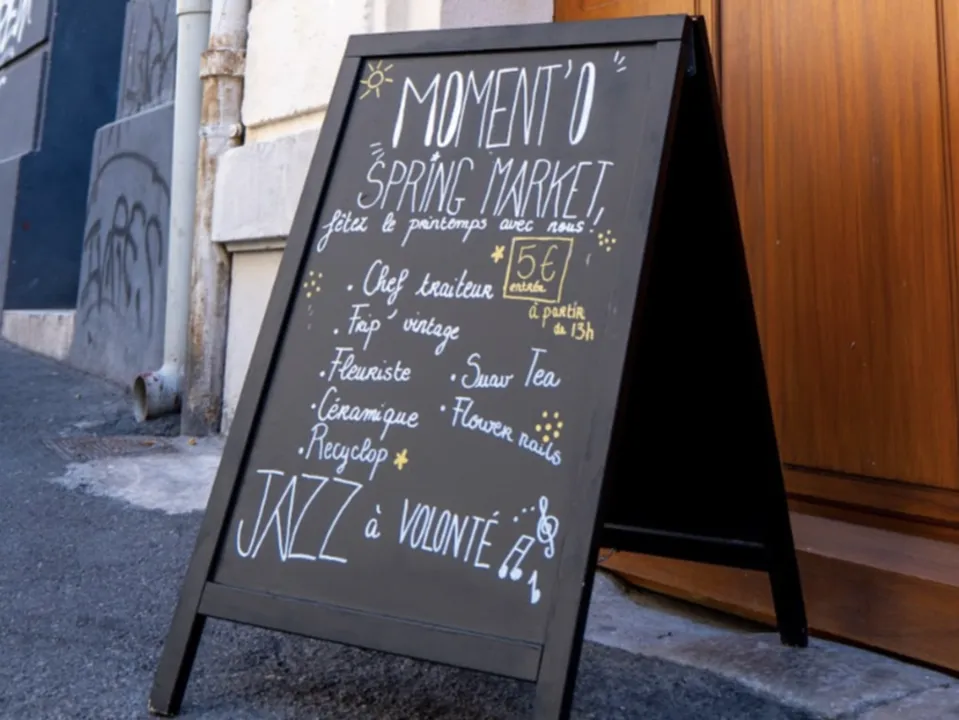 MOMENT'O
SPRING MARKET,
fêtez le printemps avec nous!
5€
entrée
à partir
de 13h
• Chef traiteur
• Frip' vintage
• Fleuriste
• Suav Tea
• Céramique
• Flower nails
• Recyclop
JAZZ à VOLONTÉ